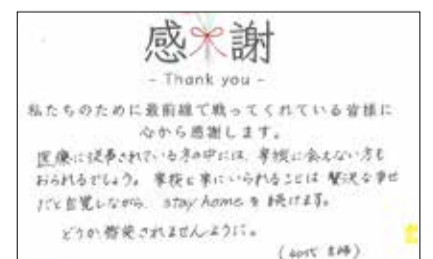 感謝
- Thank you -
私たちのために最前線で戦ってくれている皆様に
心から感謝します。
医療に従事されている方の中には、家族に会えない方も
おられるでしょう。家族と共にいられることは贅沢な幸せ
だと自覚しながら、stay homeを続けます。
どうか感染されませんように。
(40代 主婦)